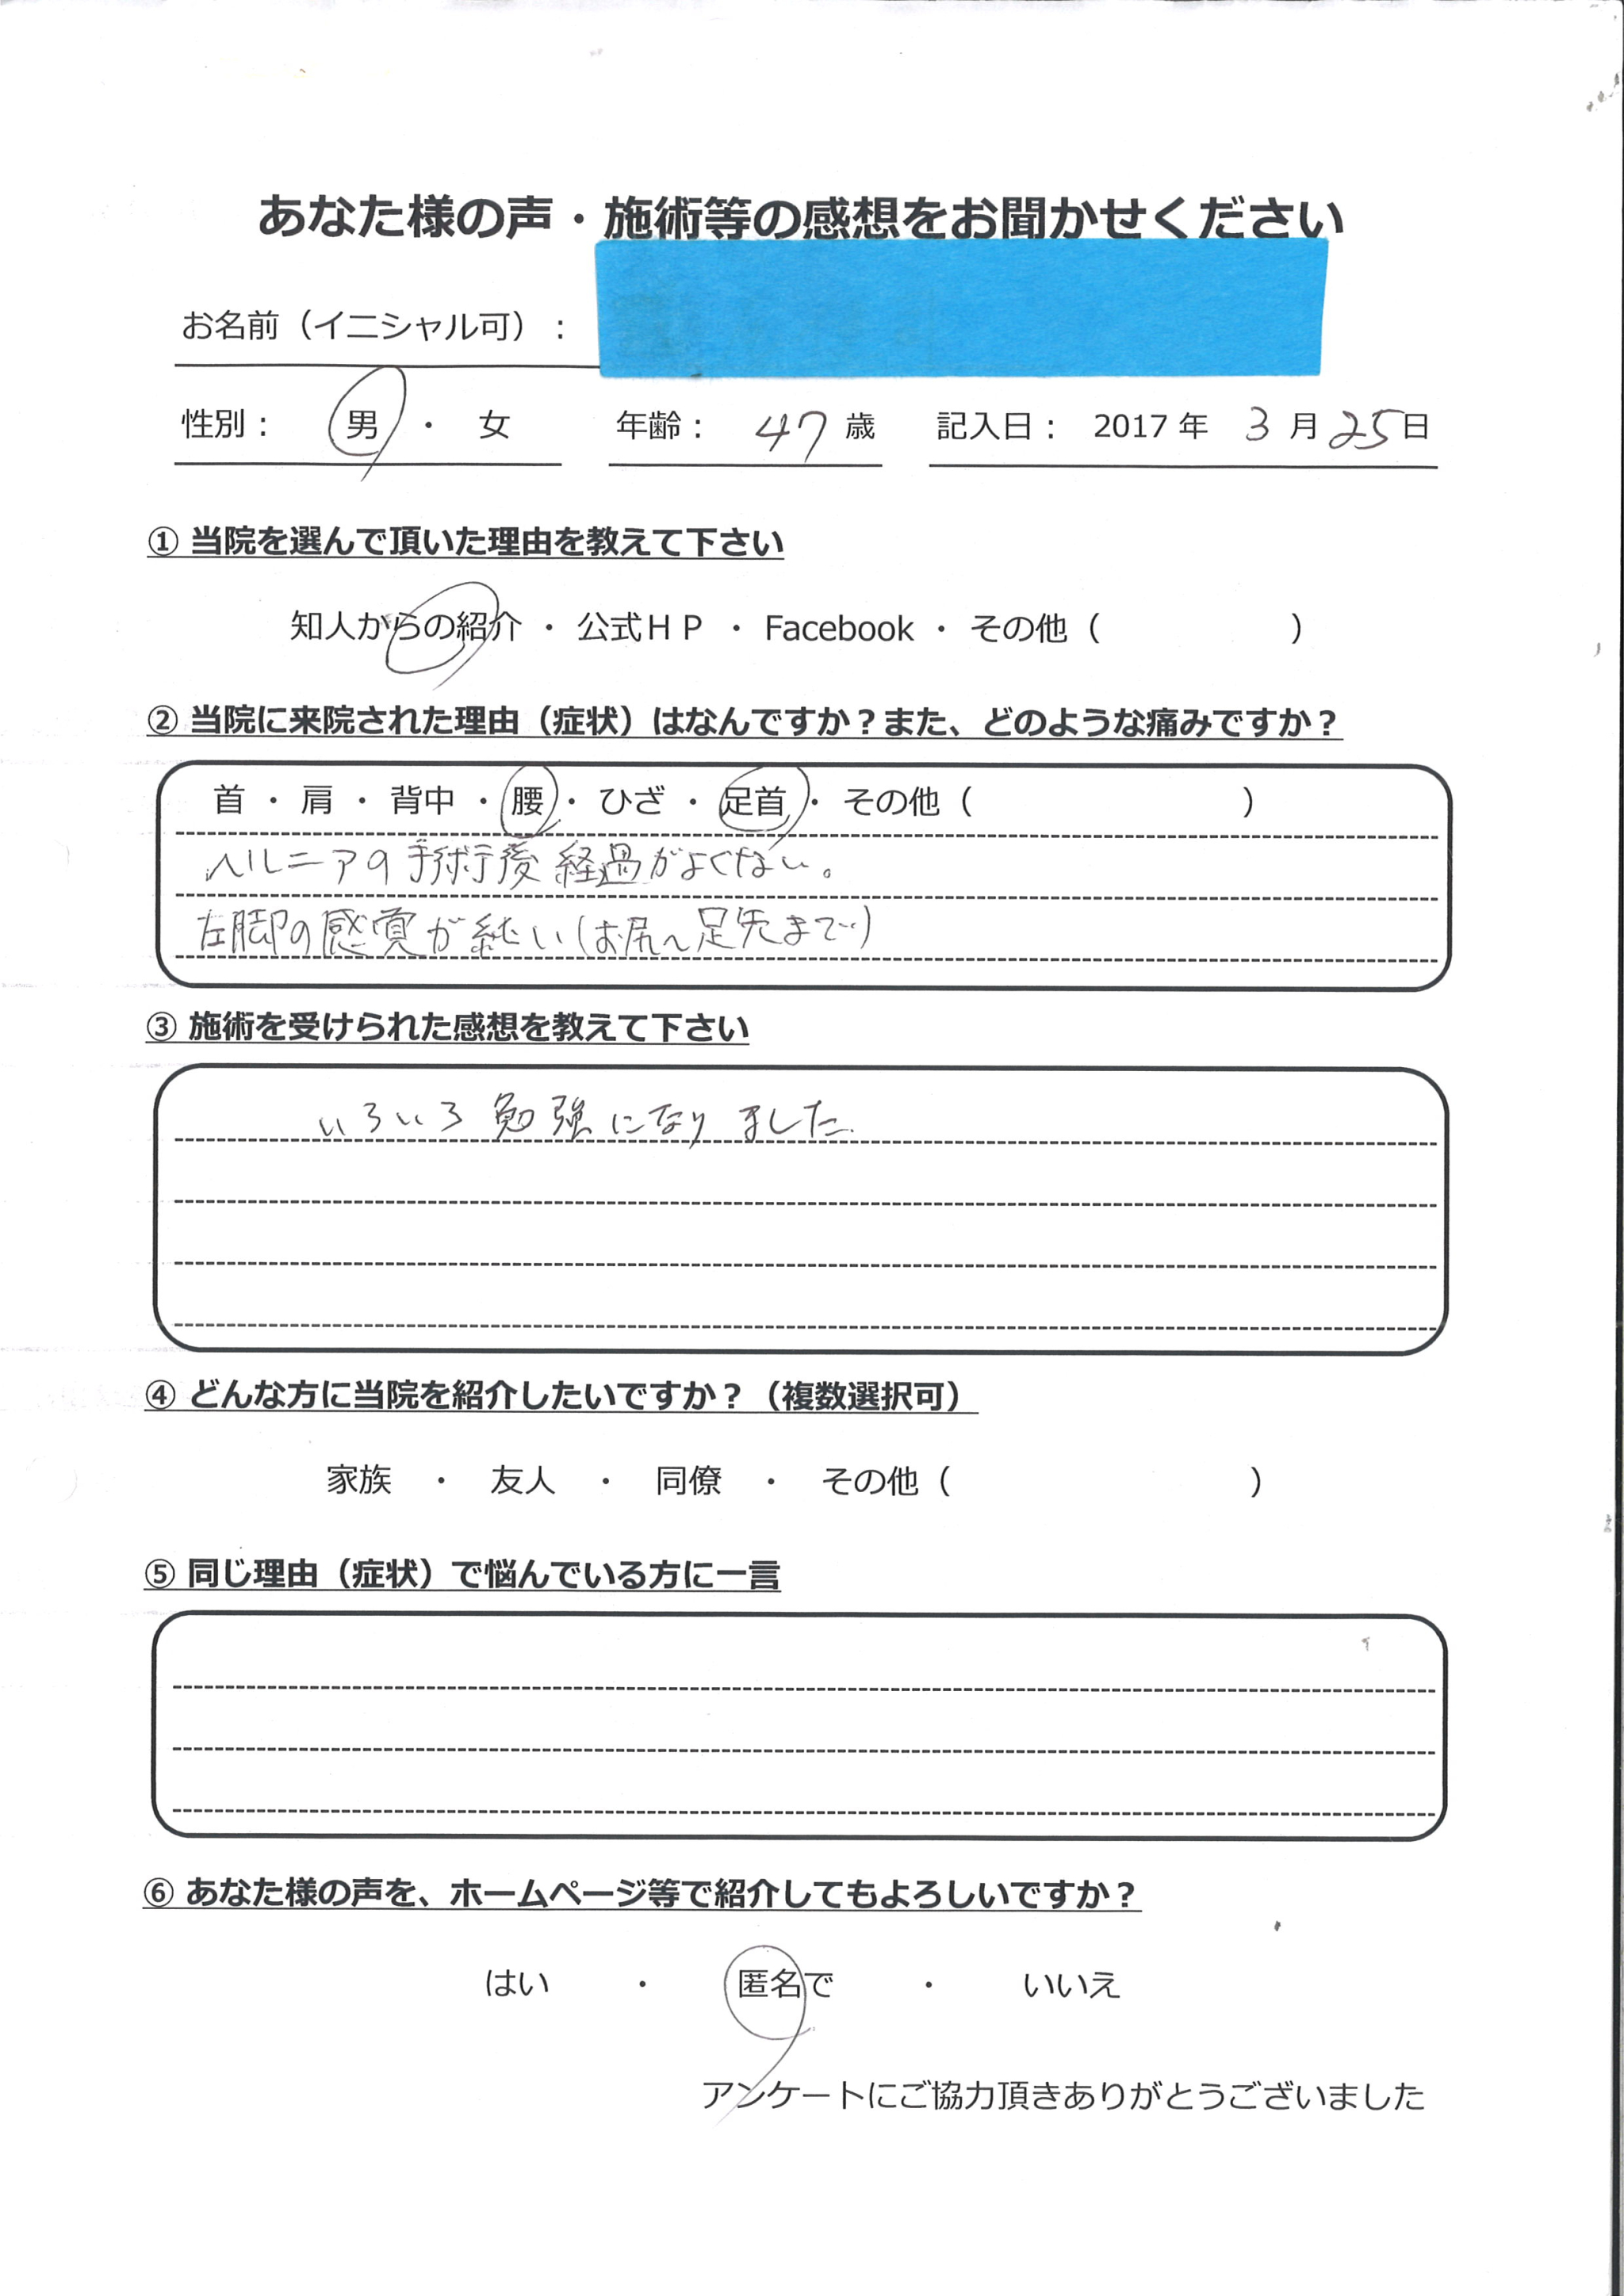 あなた様の声・施術等の感想をお聞かせください
お名前（イニシャル可）：
性別： 男 ・ 女 年齢： 47 歳 記入日： 2017 年 3 月 25 日
① 当院を選んで頂いた理由を教えて下さい
知人からの紹介 ・ 公式ＨＰ ・ Facebook ・ その他（ ）
② 当院に来院された理由（症状）はなんですか？また、どのような痛みですか？
首 ・ 肩 ・ 背中 ・ 腰 ・ ひざ ・ 足首 ・ その他（ ）
ヘルニアの手術後経過がよくない。
左脚の感覚が鈍い(お尻～足先まで)
③ 施術を受けられた感想を教えて下さい
いろいろ勉強になりました.
④ どんな方に当院を紹介したいですか？（複数選択可）
家族 ・ 友人 ・ 同僚 ・ その他（ ）
⑤ 同じ理由（症状）で悩んでいる方に一言
⑥ あなた様の声を、ホームページ等で紹介してもよろしいですか？
はい ・ 匿名で ・ いいえ
アンケートにご協力頂きありがとうございました